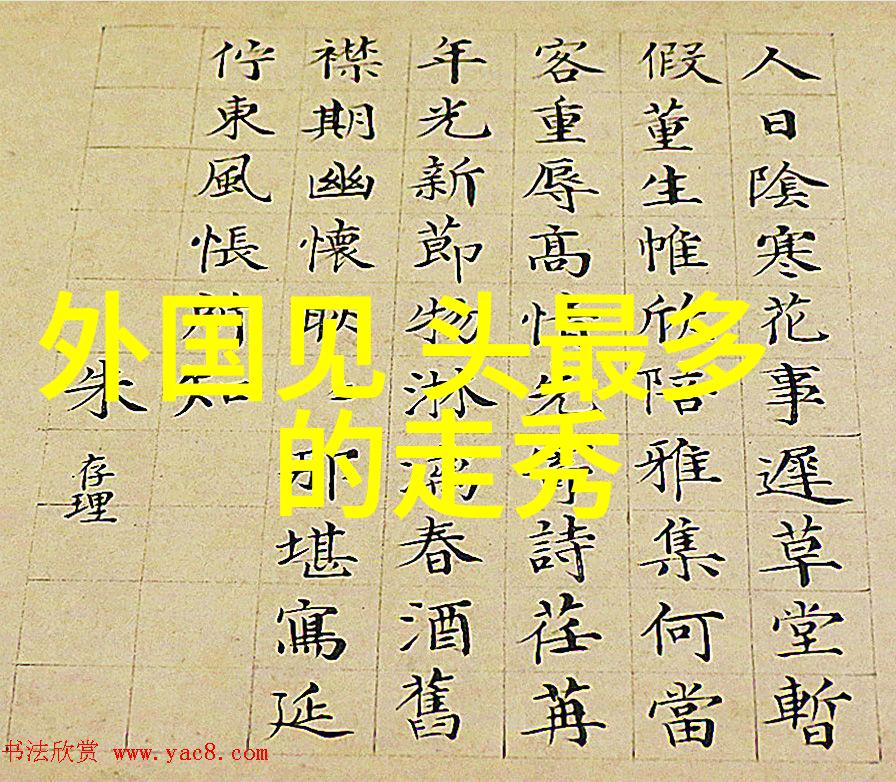 人日陰寒花事遲草堂暫
假董生帷欣陪雅集何當
客重辱高情先詩荏苒
年光新節物淋漓春酒舊
襟期幽懷耿那堪寫延
佇東風悵知
朱存理
外国见 头最多
的走秀
书法欣赏 www.yac8.com